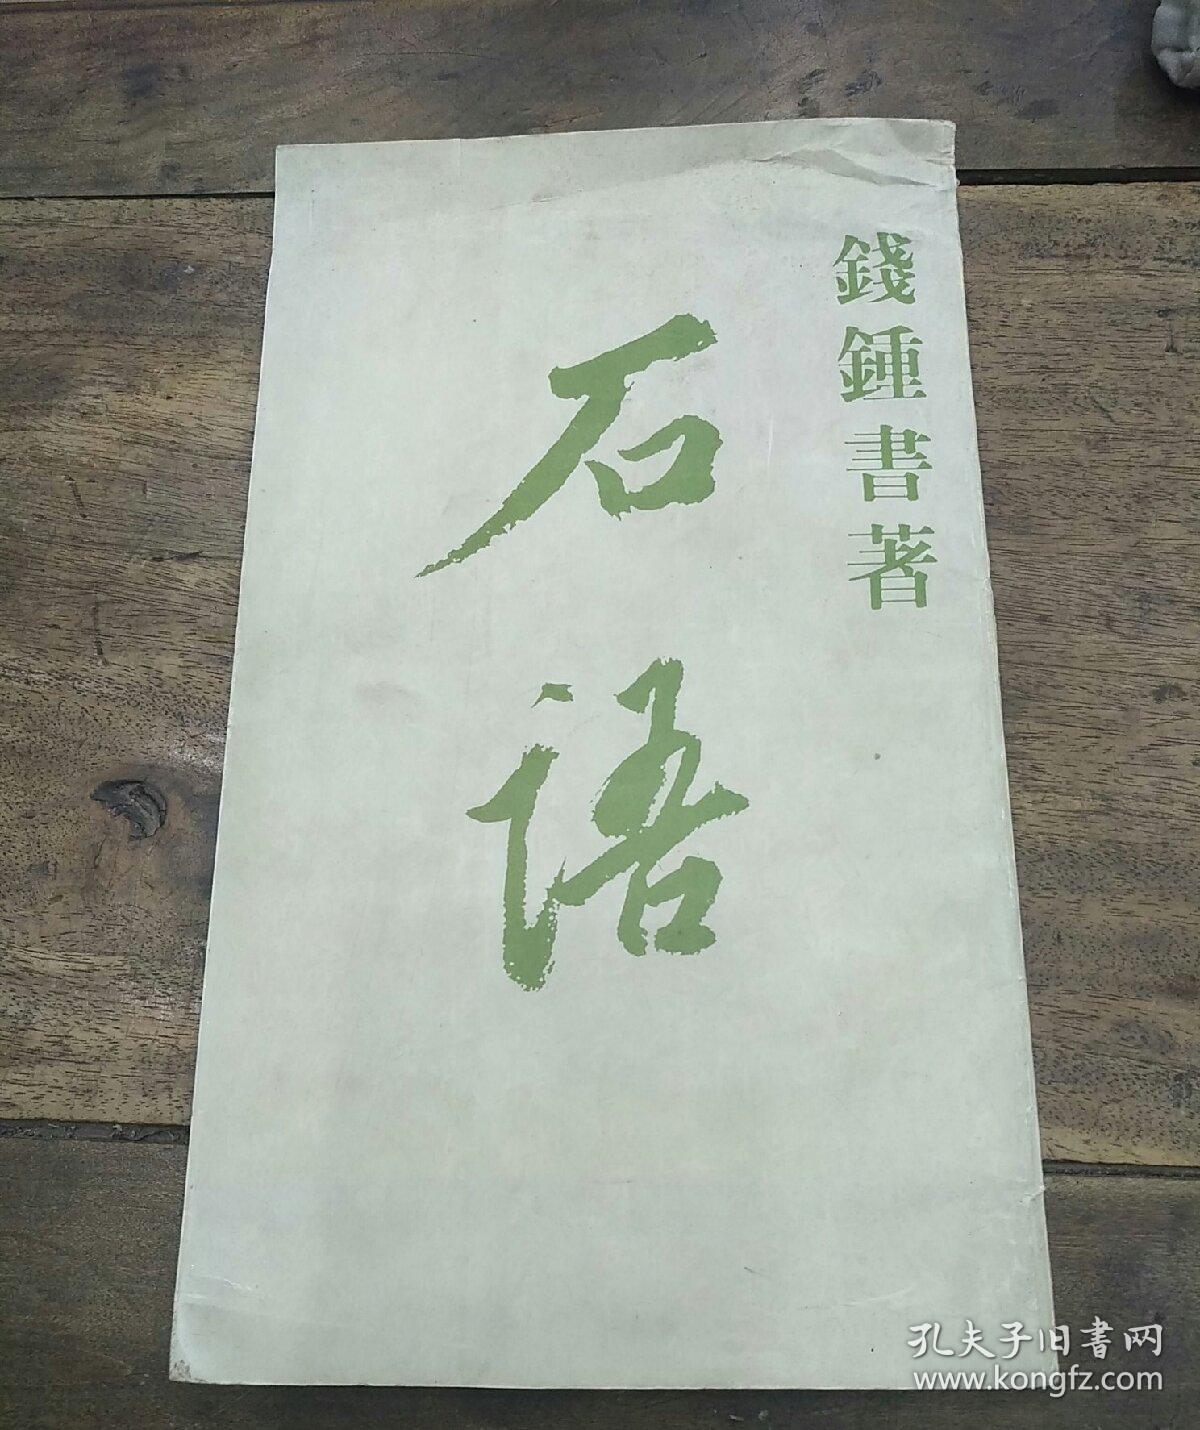 錢鍾書著
石语
孔夫子旧書网
www.kongfz.com